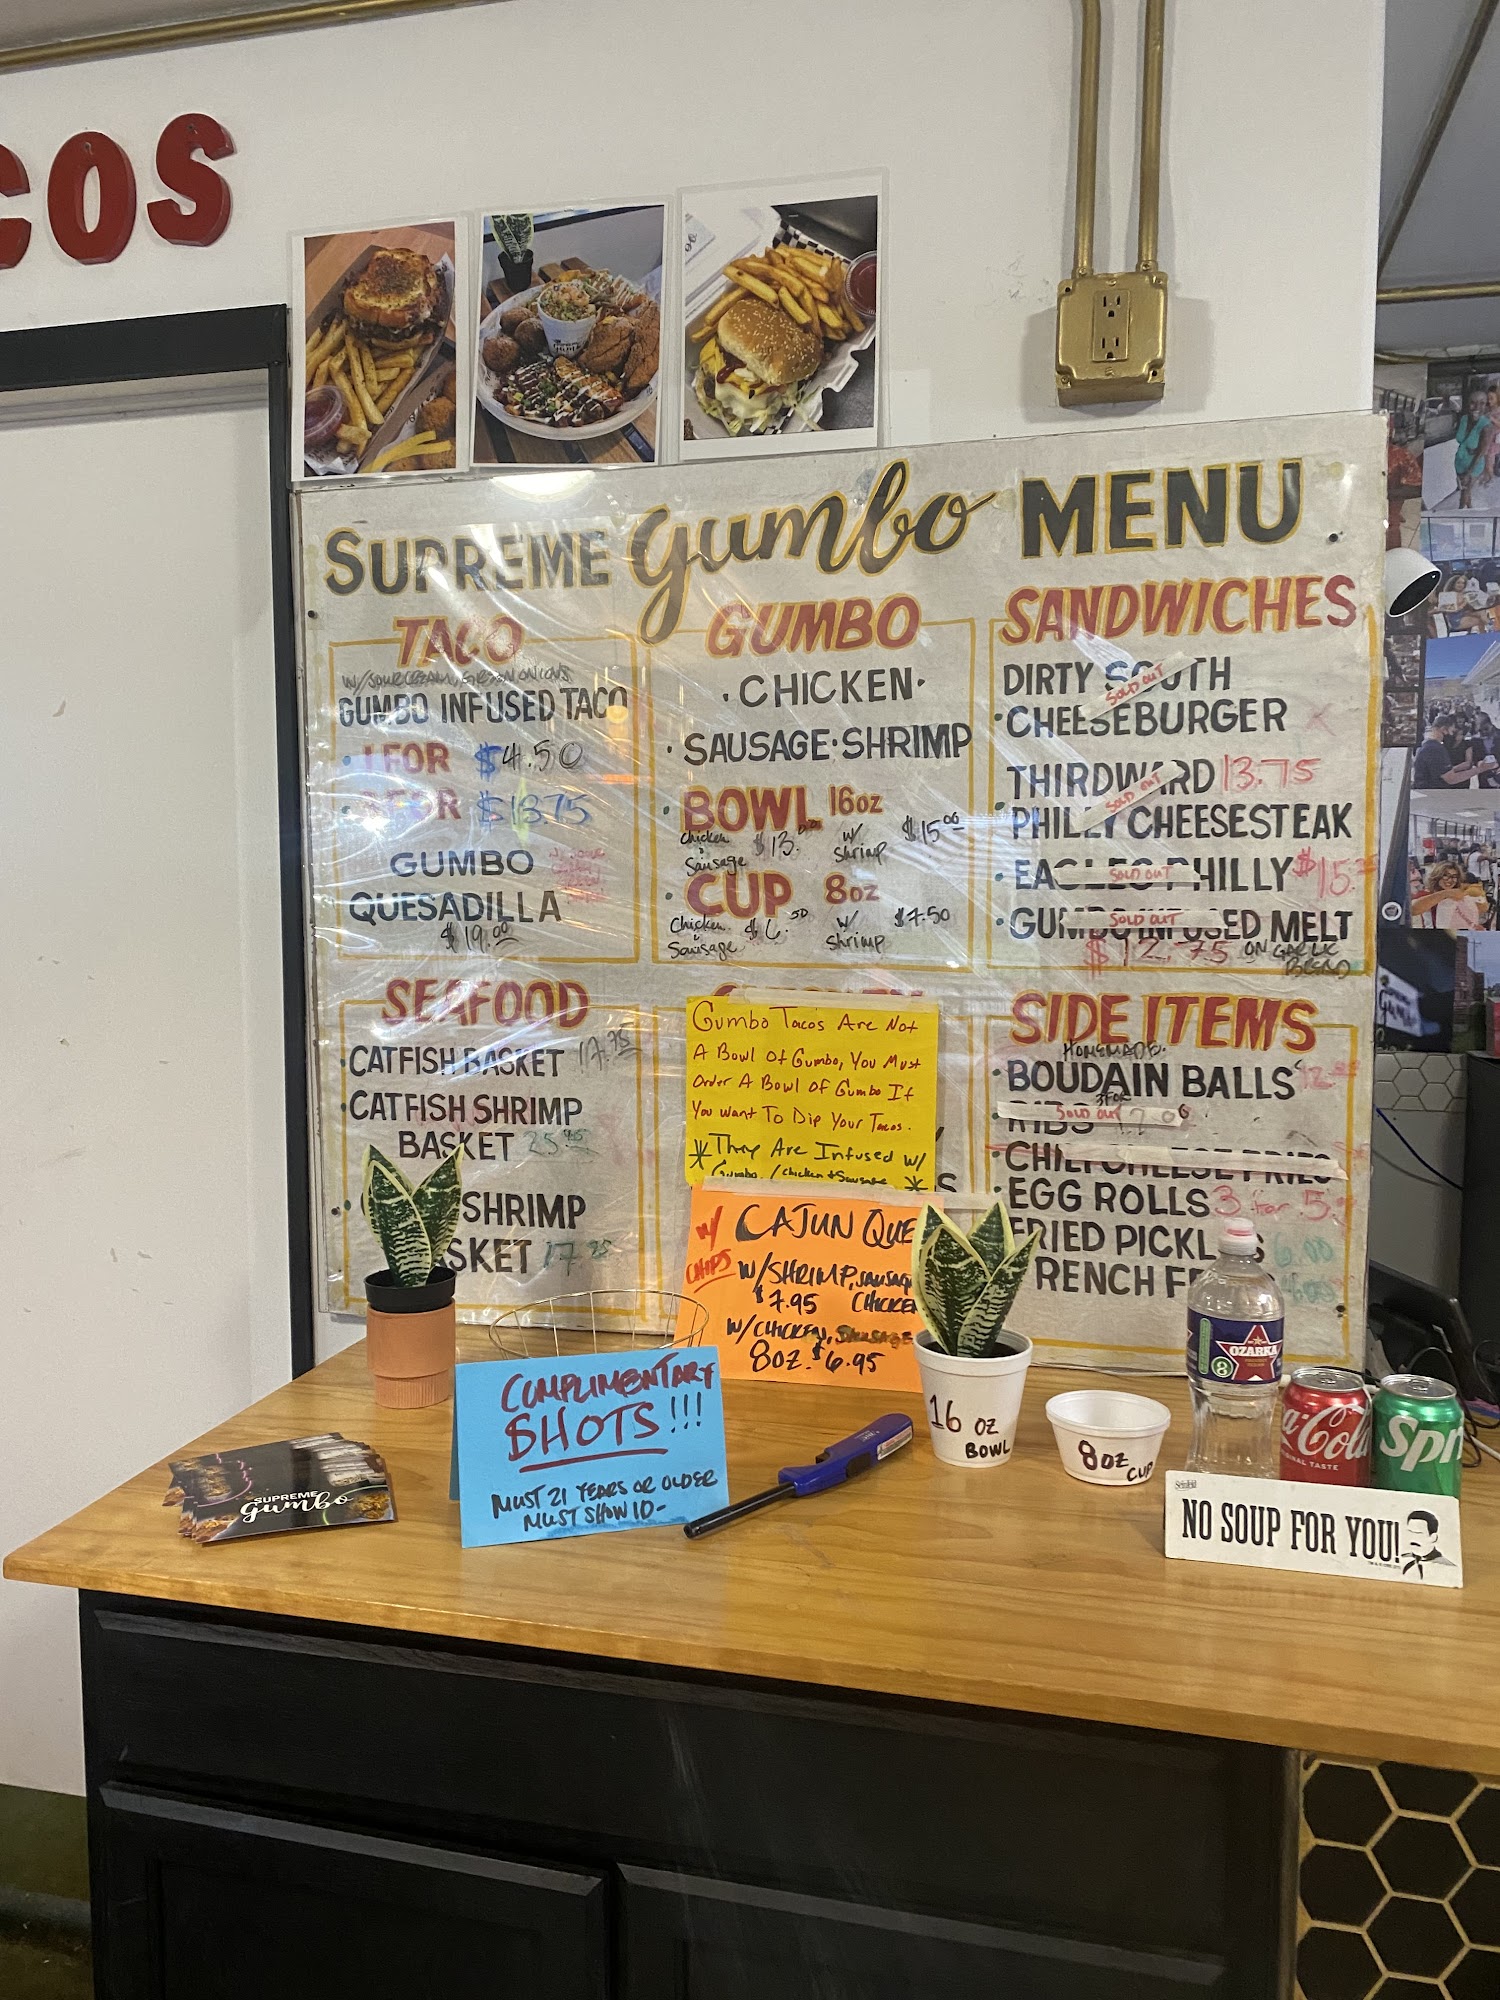 COS
SUPREME gumbo MENU
TACO
W/SOUR CREAM, GREEN ONIONS
GUMBO INFUSED TACO
1 FOR $4.50
FOR $13.75
GUMBO
QUESADILLA
$19.00
GUMBO
CHICKEN
SAUSAGE SHRIMP
BOWL 16oz
Chicken & Sausage $13.00 w/ Shrimp $15.00
CUP 8oz
Chicken & Sausage $6.50 w/ Shrimp $7.50
SANDWICHES
DIRTY SOUTH
SOLD OUT
CHEESEBURGER
THIRDWARD 13.75
SOLD OUT
PHILLY CHEESESTEAK
EAGLES PHILLY $15.
SOLD OUT
GUMBO INFUSED MELT
SOLD OUT
$12.75 ON GARLIC
BREAD
SEAFOOD
CATFISH BASKET 17.75
CATFISH SHRIMP
BASKET 25
SHRIMP
BASKET 17
Gumbo Tacos Are Not
A Bowl Of Gumbo, You Must
Order A Bowl Of Gumbo If
You Want To Dip Your Tacos.
*They Are Infused w/
Gumbo. (Chicken + Sausage *
W/ CAJUN QUE
CHIPS
W/SHRIMP, SAUSAG
$7.95 CHICKEN
W/CHICKEN, SAUSAGE
8OZ. $6.95
SIDE ITEMS
HOMEMADE
BOUDAIN BALLS
3 FOR
RIBS
SOLD OUT
CHILI CHEESE FRIES
EGG ROLLS 3 for 5
FRIED PICKLES 6.00
FRENCH F
COMPLIMENTARY
SHOTS!!!
MUST 21 YEARS OR OLDER
MUST SHOW ID-
SUPREME
gumbo
16 oz
BOWL
8oz
CUP
OZARKA
8
a-Cola
ORIGINAL TASTE
Spri
NO SOUP FOR YOU!